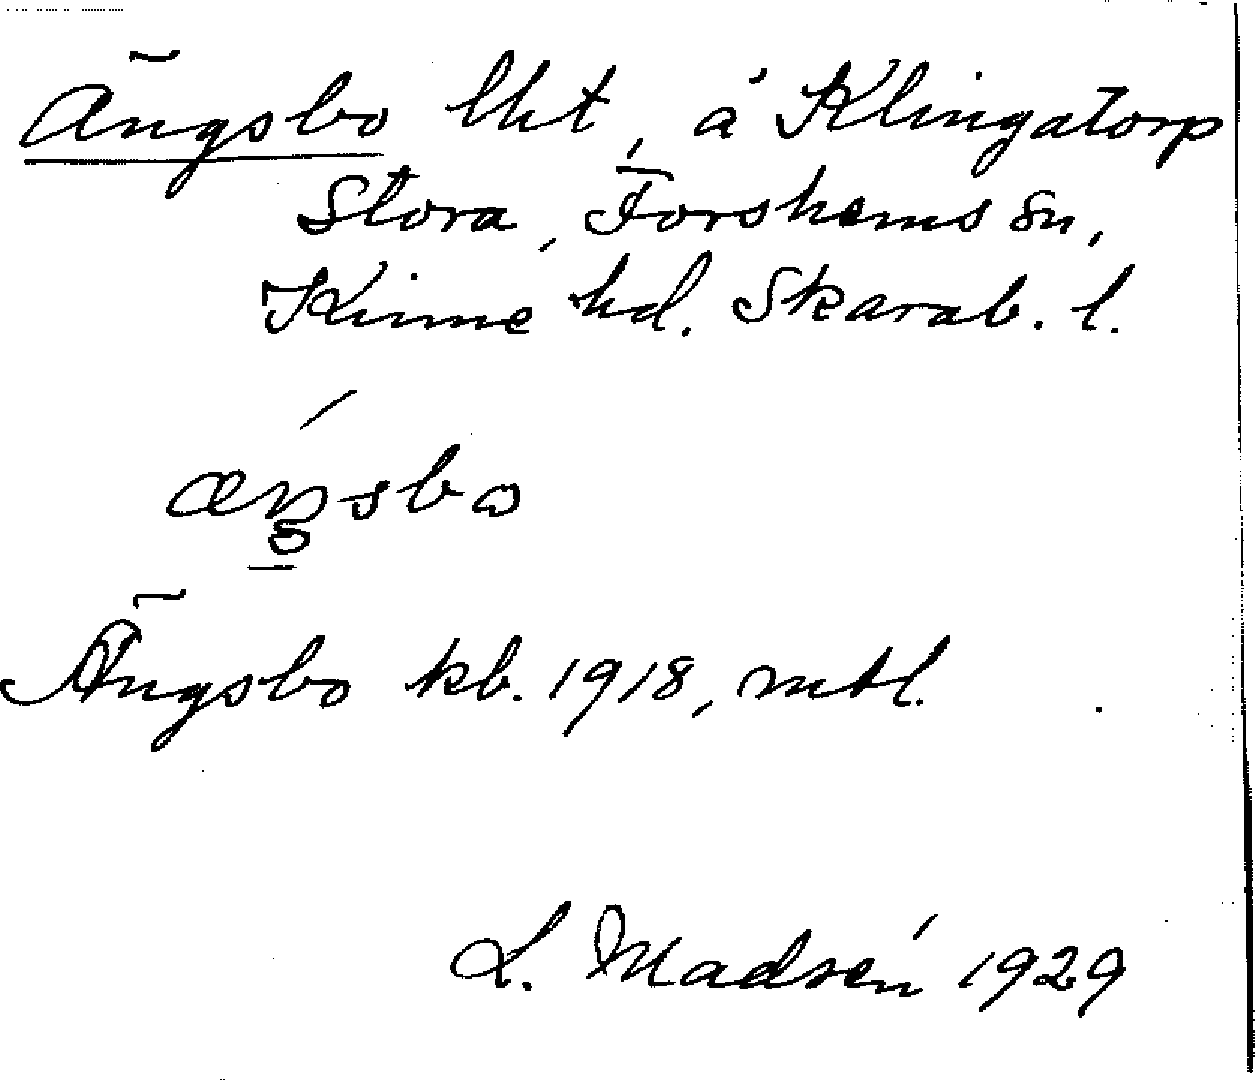 Ängsbo lht, å Klingatorp
Stora, Forshems sn,
Kinne hd. Skarab. l.
Ängsbo kb. 1918, mtl.
L. Madsén 1929